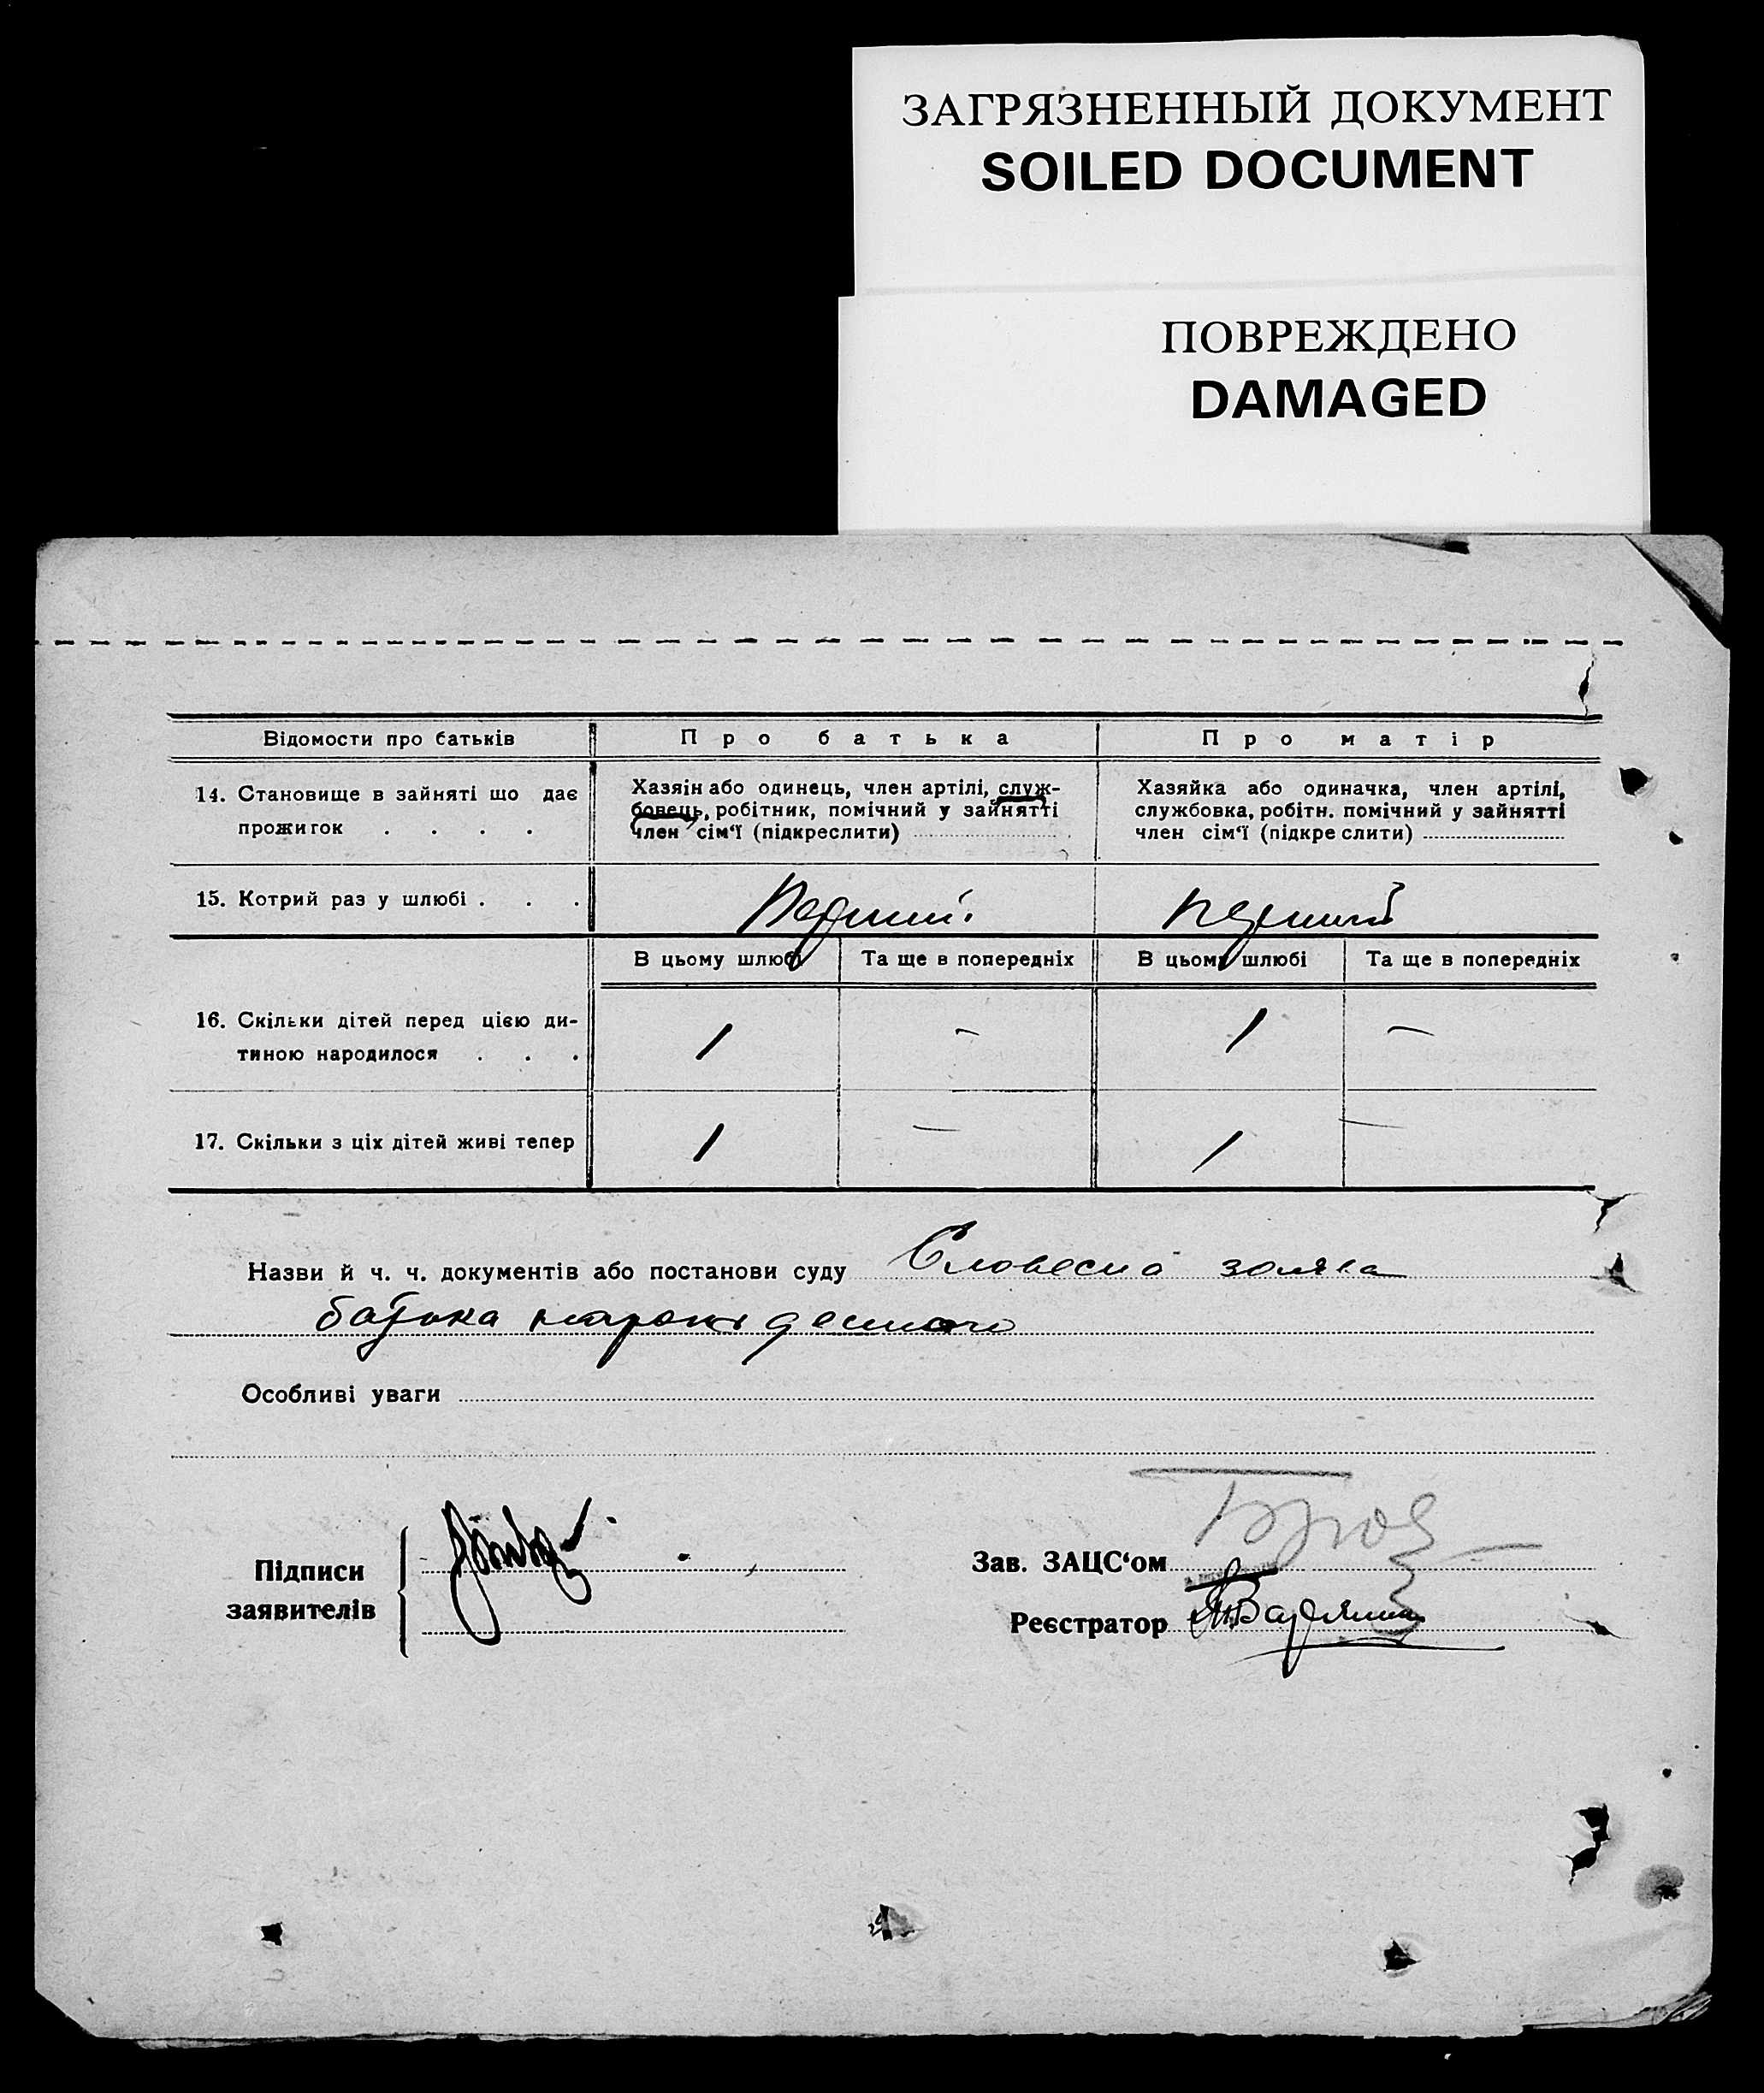 ЗАГРЯЗНЕННЫЙ ДОКУМЕНТ
SOILED DOCUMENT
ПОВРЕЖДЕНО
DAMAGED
Відомости про батьків
Про батька
Про матір
14. Становище в зайняті що дає
прожиток . . . .
Хазяін або одинець, член артілі, служ-
бовець, робітник, помічний у зайнятті
член сім‘ї (підкреслити)
Хазяйка або одиначка, член артілі,
службовка, робітн. помічний у зайнятті
член сім‘ї (підкреслити)
15. Котрий раз у шлюбі . . .
Перший.
перший
В цьому шлюбі
Та ще в попередніх
В цьому шлюбі
Та ще в попередніх
16. Скільки дітей перед цією ди-
тиною народилося . . .
1 – 1 –
17. Скільки з ціх дітей живі тепер
1 – 1 –
Назви й ч. ч. документів або постанови суду Словесна заява
батька
Особливі уваги
Підписи
заявителів
Зав. ЗАЦС‘ом
Реєстратор